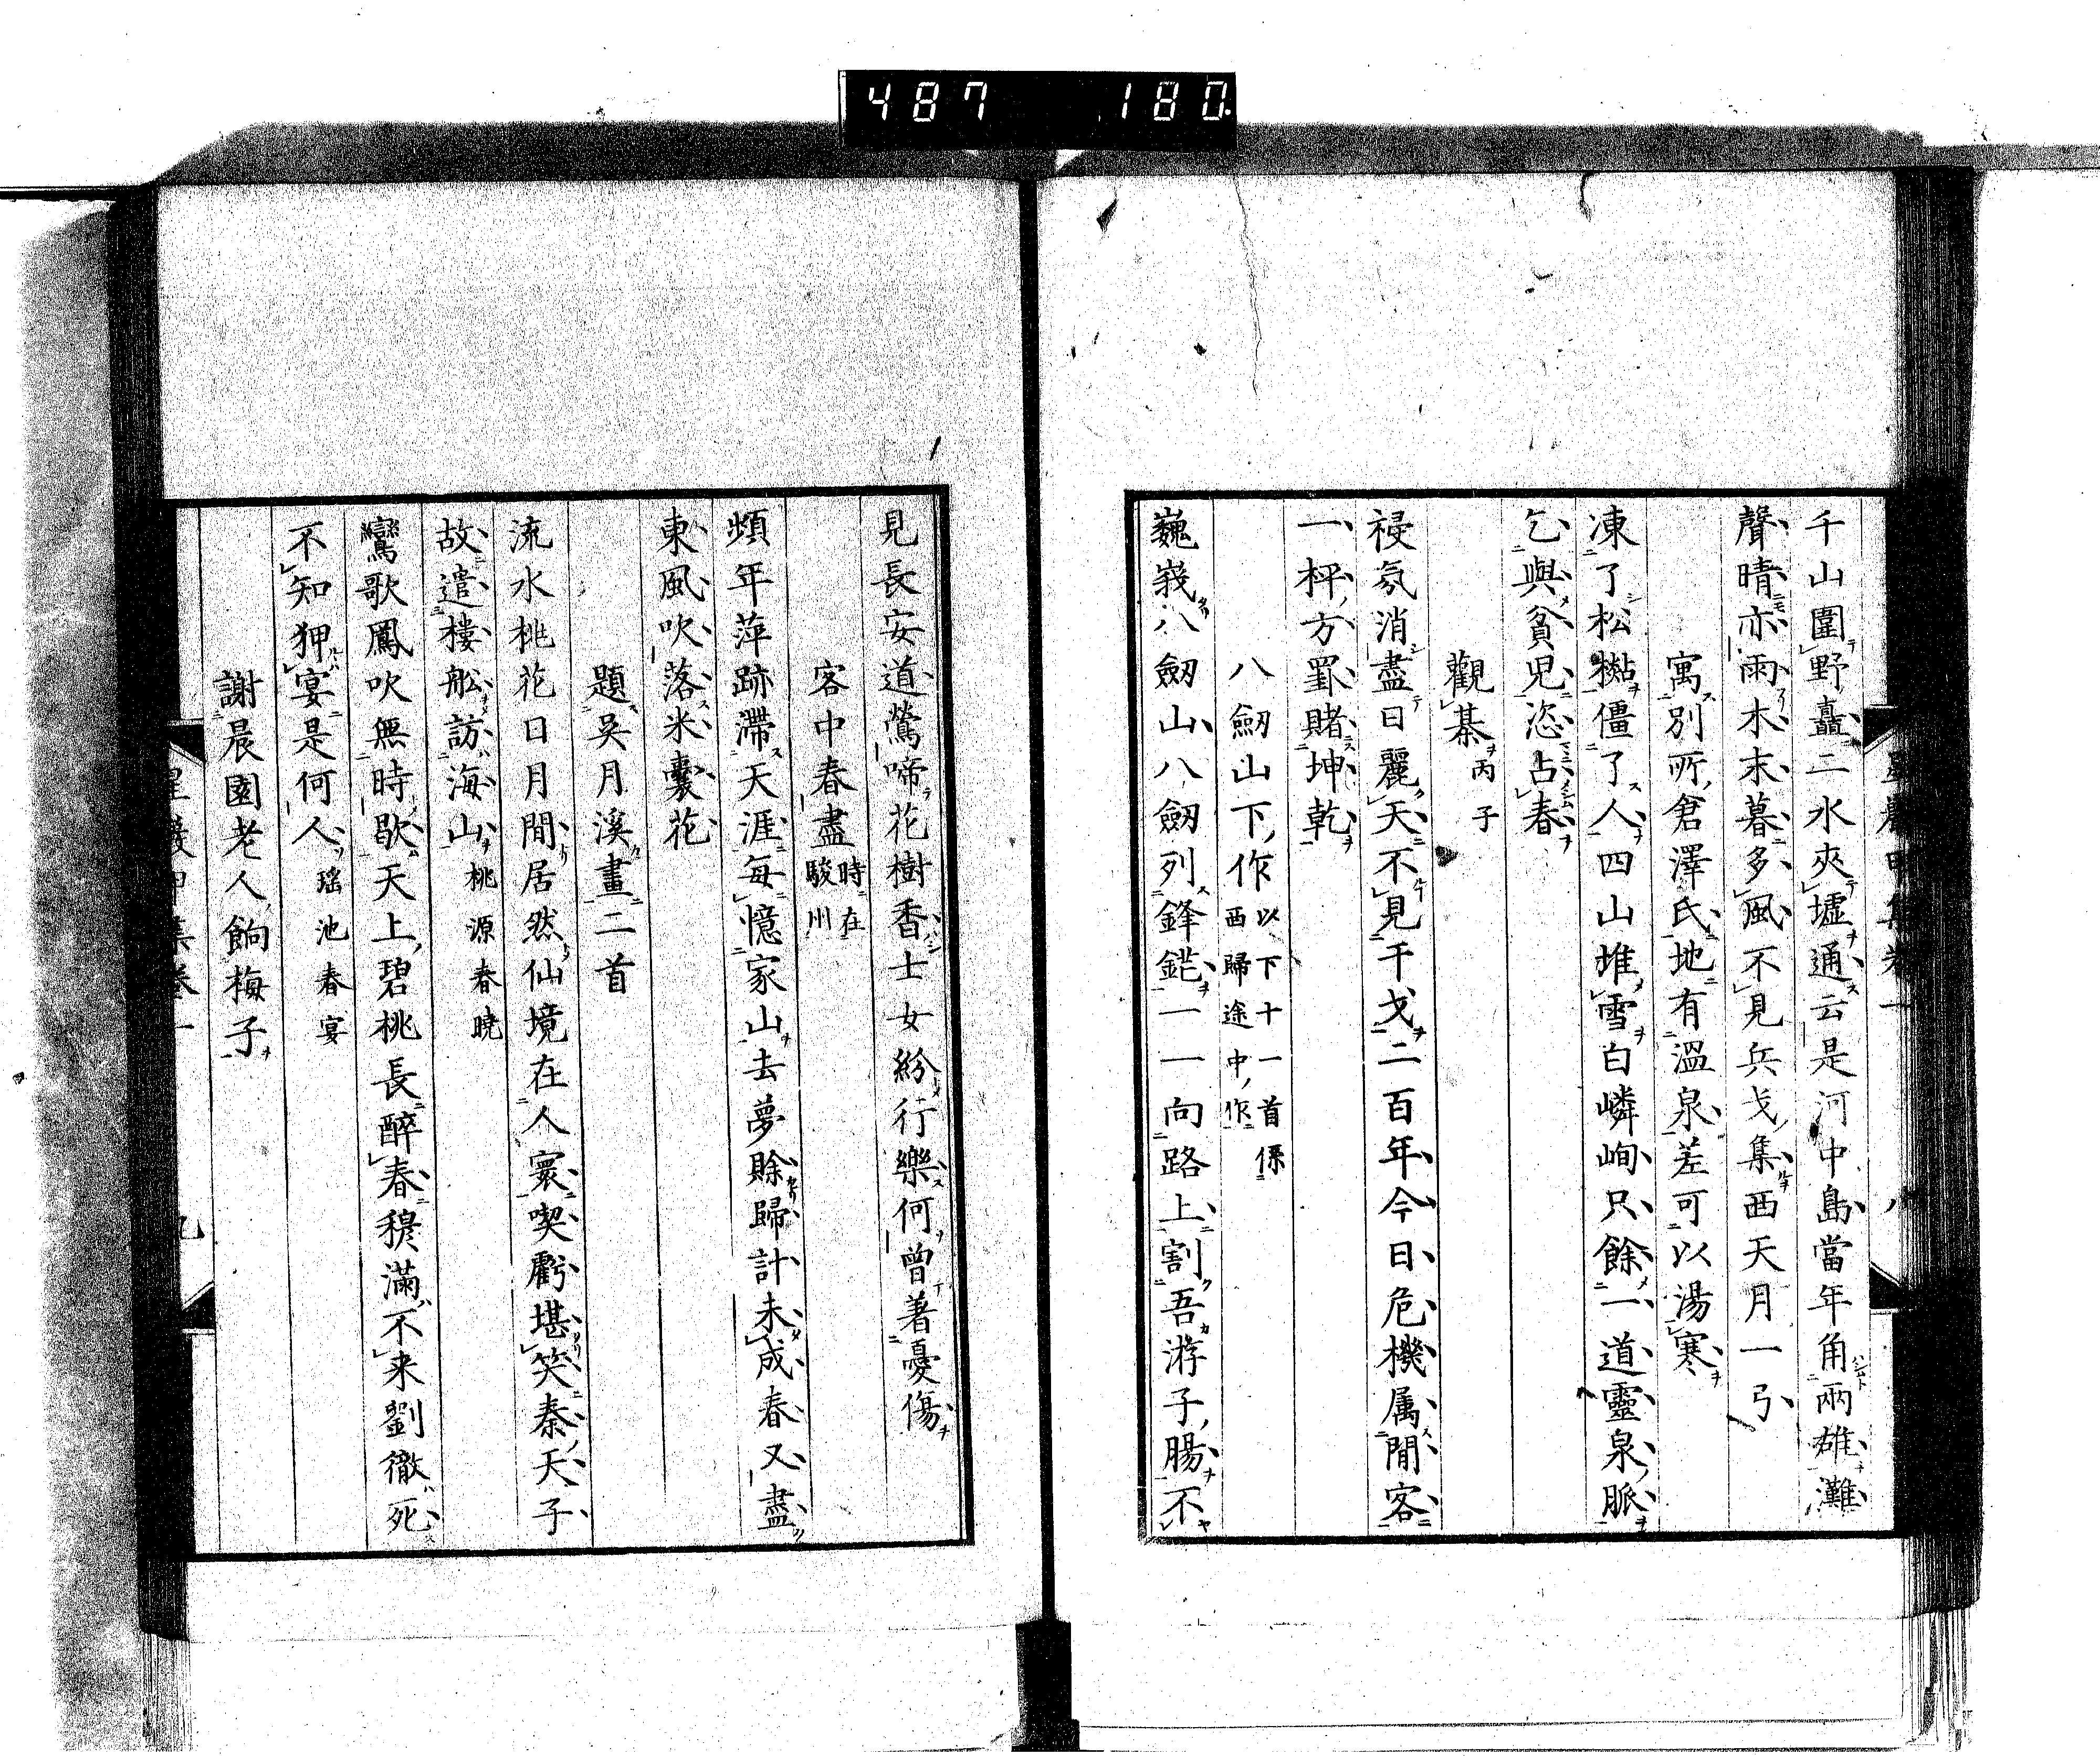 487 180
千山圍野矗二水夾墟通云是河中島當年角兩雄灘
聲晴亦雨木末暮多風不見兵戈集西天月一弓
寓別所倉澤氏地有溫泉差可以湯寒
凍了松㯭僵了人四山堆雪白嶙峋只餘一道靈泉脈
乞與貧兒恣占春
觀棊丙子
祲氛消盡日麗天不見干戈二百年今日危機属閒客
一枰方罫賭坤乾
八劒山下作以下十一首係
西歸途中作
巍峩八劒山八劒列鋒鋩一一向路上割吾游子腸不
見長安道鶯啼花樹香士女紛行樂何曾著憂傷
客中春盡時在
駿州
頻年萍跡滯天涯每憶家山去夢賒歸計未成春又盡
東風吹落米囊花
題吳月溪畫二首
流水桃花日月間居然仙境在人寰喫虧堪笑秦天子
故遣樓舩訪海山桃源春曉
鸞歌鳳吹無時歇天上碧桃長醉春穠滿不来劉徹死
不知狎宴是何人瑶池春宴
謝晨園老人餉梅子